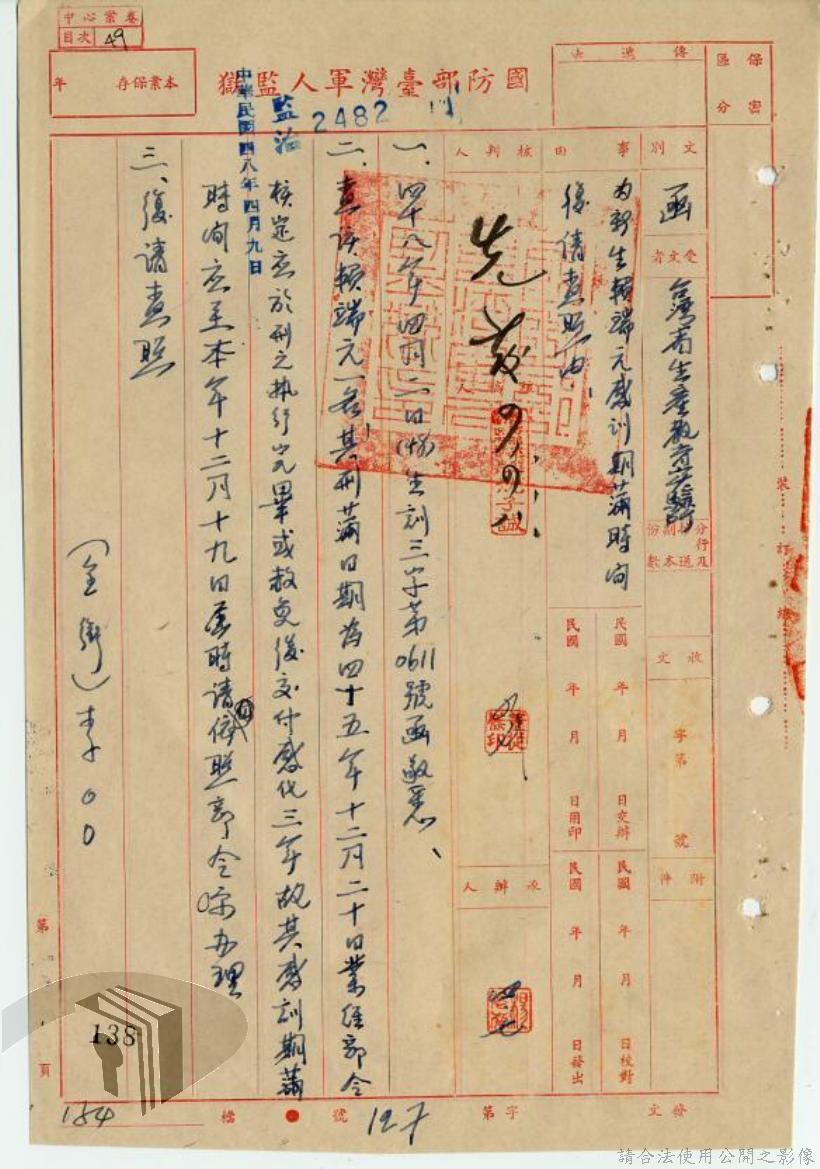 中心業卷
目次 49
國防部臺灣軍人監獄
本業保存 年
傳遞法
保密區分
文別 函
受文者 台灣省生產教育實驗所
分行及副通份本數
事由
為新生賴瑞元感訓期滿時間
復請查照由
核判人
先發
收文 字第 號
附件
民國 年 月 日交辦
民國 年 月 日用印
民國 年 月 日校對
民國 年 月 日發出
承辦人
中華民國四八年四月九日
監治 2482
一、四十八年四月二日(48)生訓三字第0611號函敬悉、
二、查該賴瑞元一名其刑滿日期為四十五年十二月二十日業經部令
核定应於刑之執行完畢或赦免後交付感化三年故其感訓期滿
時间应至本年十二月十九日屆時請依照部令办理
三、復請查照
(全銜)李○○
裝 訂 線
第 頁
138
184
檔 號 127
字第
發文
請合法使用公開之影像